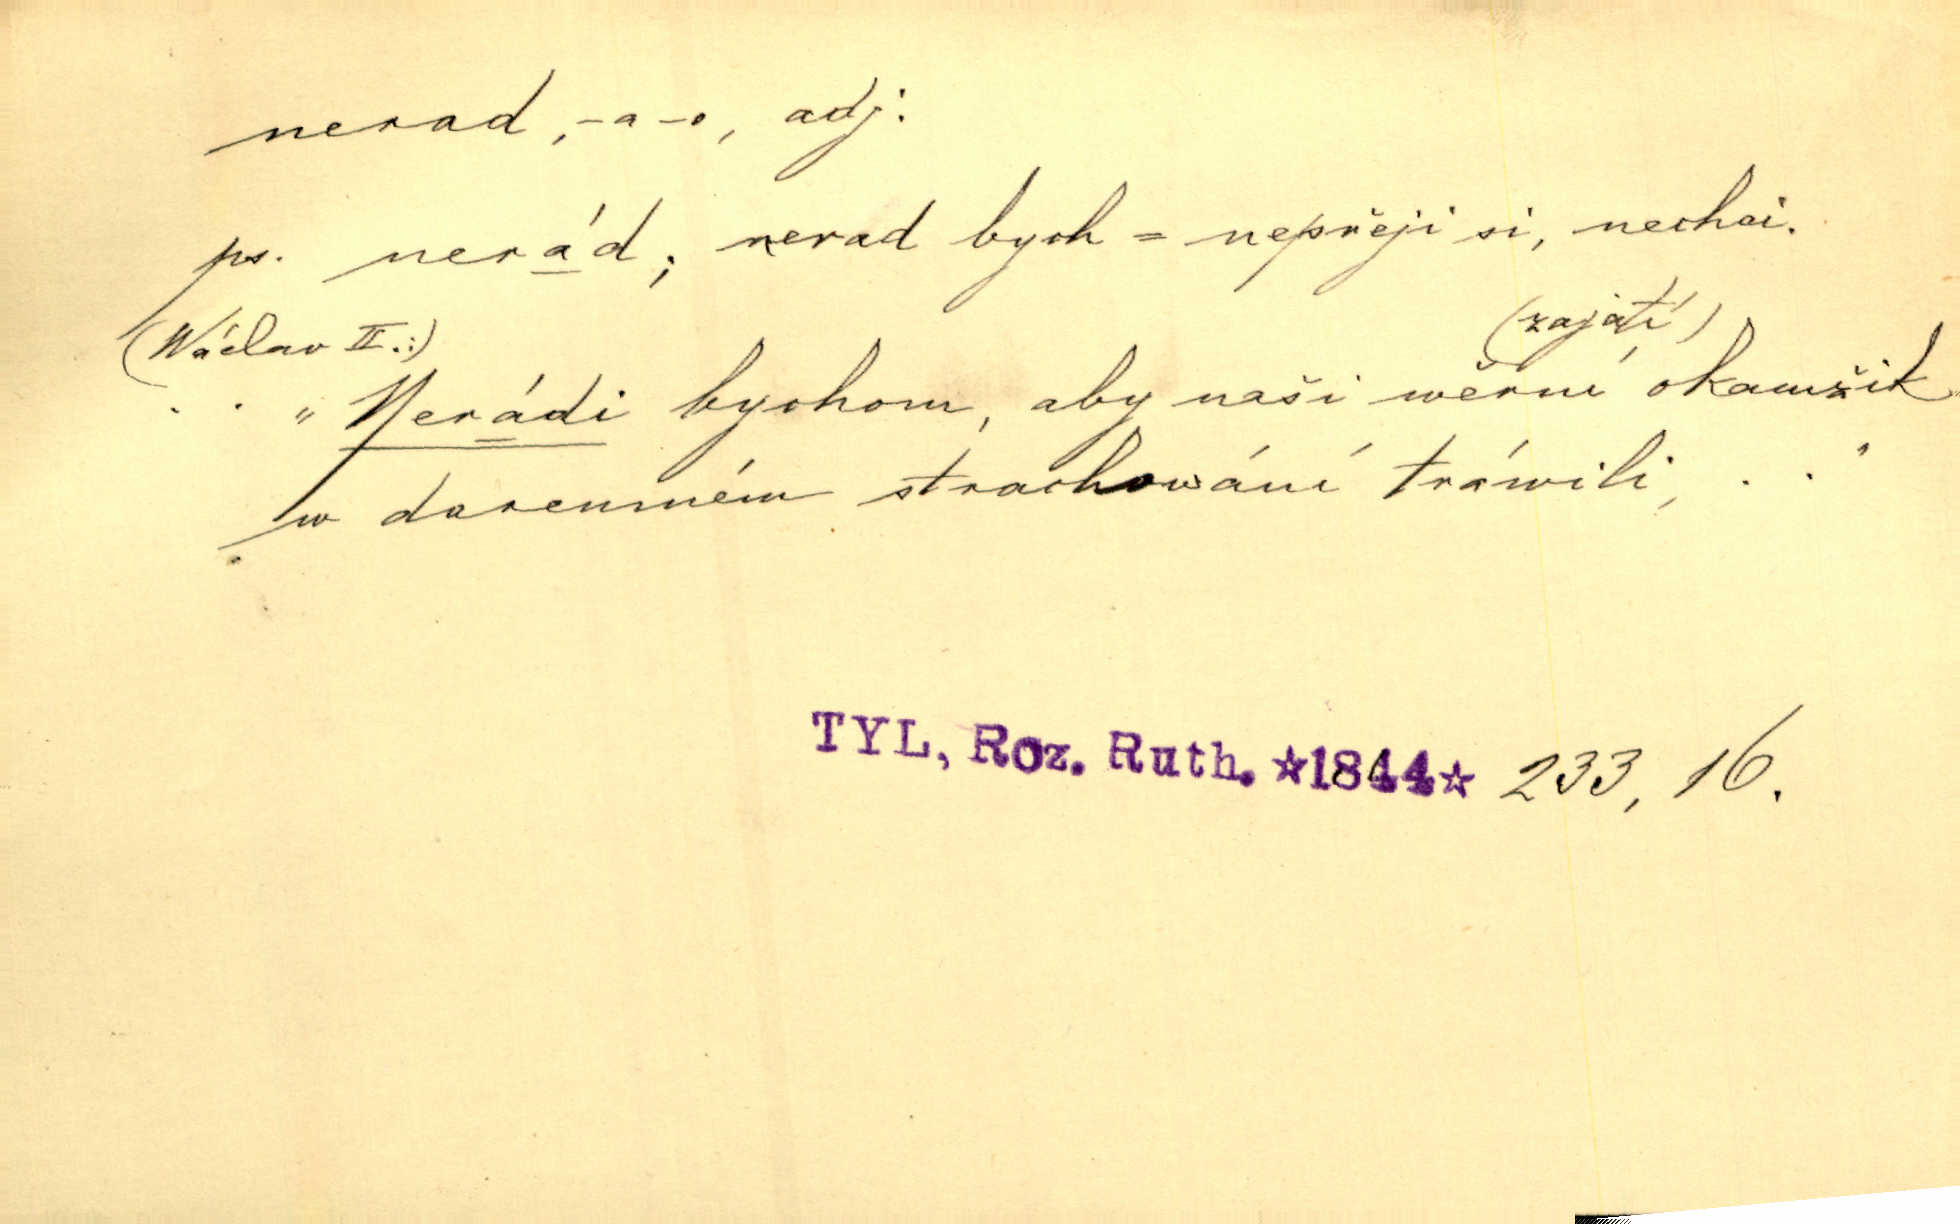 nerad, -a -o, adj:
ps. nerád; nerad bych = nepřeji si, nechci.
(Wáclav II.:) (zajatí)
. . „Nerádi bychom, aby naši wěrní okamžik
w daremném strachowání tráwili, . ."
TYL, Roz. Ruth. ☆1844☆ 233, 16.